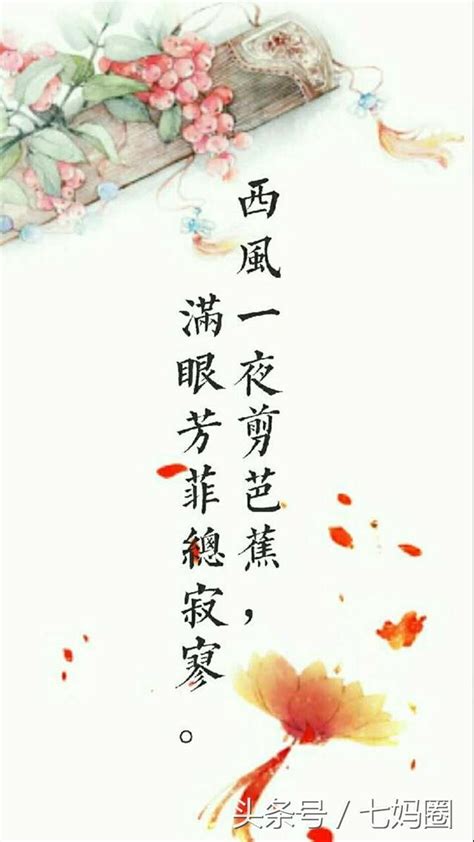 西風一夜剪芭蕉，
滿眼芳菲總寂寥。
头条号／七妈圈